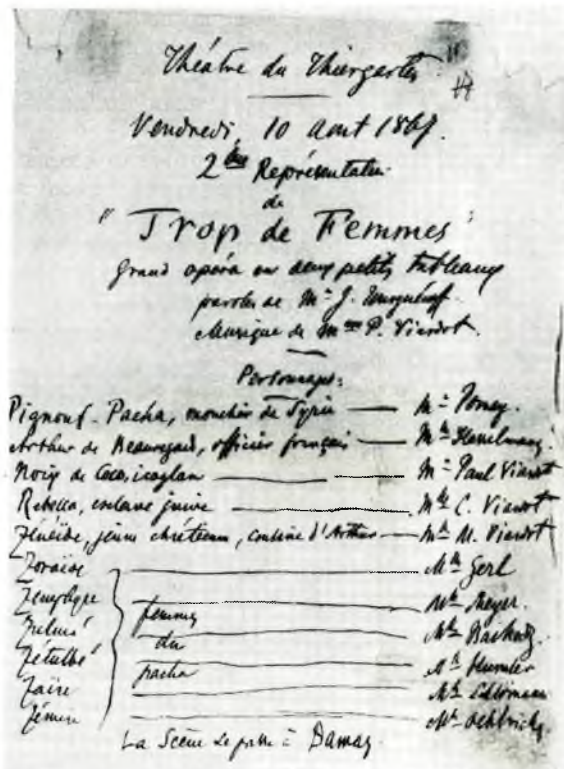 Théâtre du Thiergarten
Vendredi, 10 Aout 1867.
2ème Représentation
de
"Trop de Femmes"
grand opéra en deux petits tableaux
paroles de Mr J.
Musique de Mme P. Viardot.
Personnages:
Pignouf-Pacha, de Syrie — Mr Pomey.
Arthur de Beauregard, officier français — Mlle
Noix de Coco, icoglan — Mr Paul Viardot
Rebecca, esclave juive — Mlle C. Viardot
Zénéide, jeune chrétienne, cousine d'Arthur — Mlle M. Viardot
Zoraïde — Mlle Gerl
— Mlle Meyer.
femmes
Zulmé — Mlle
du
Zétulbé — Mlle
pacha
Zaïre — Mlle
Zémire — Mlle
La Scène se passe à Damas.